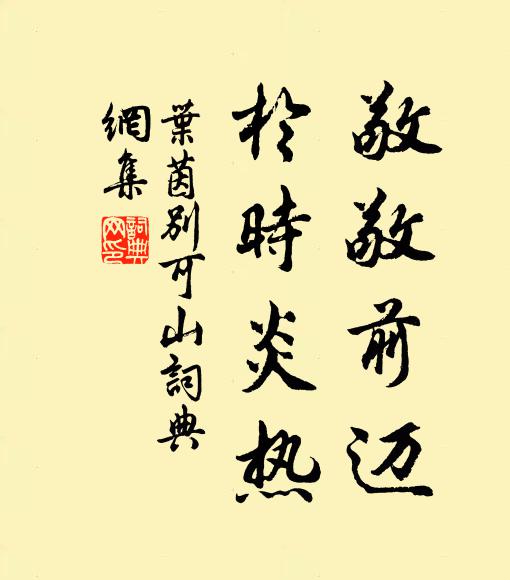 敬敬前迈
於時炎热
葉茵别可山詞典
網集
詞典
网印